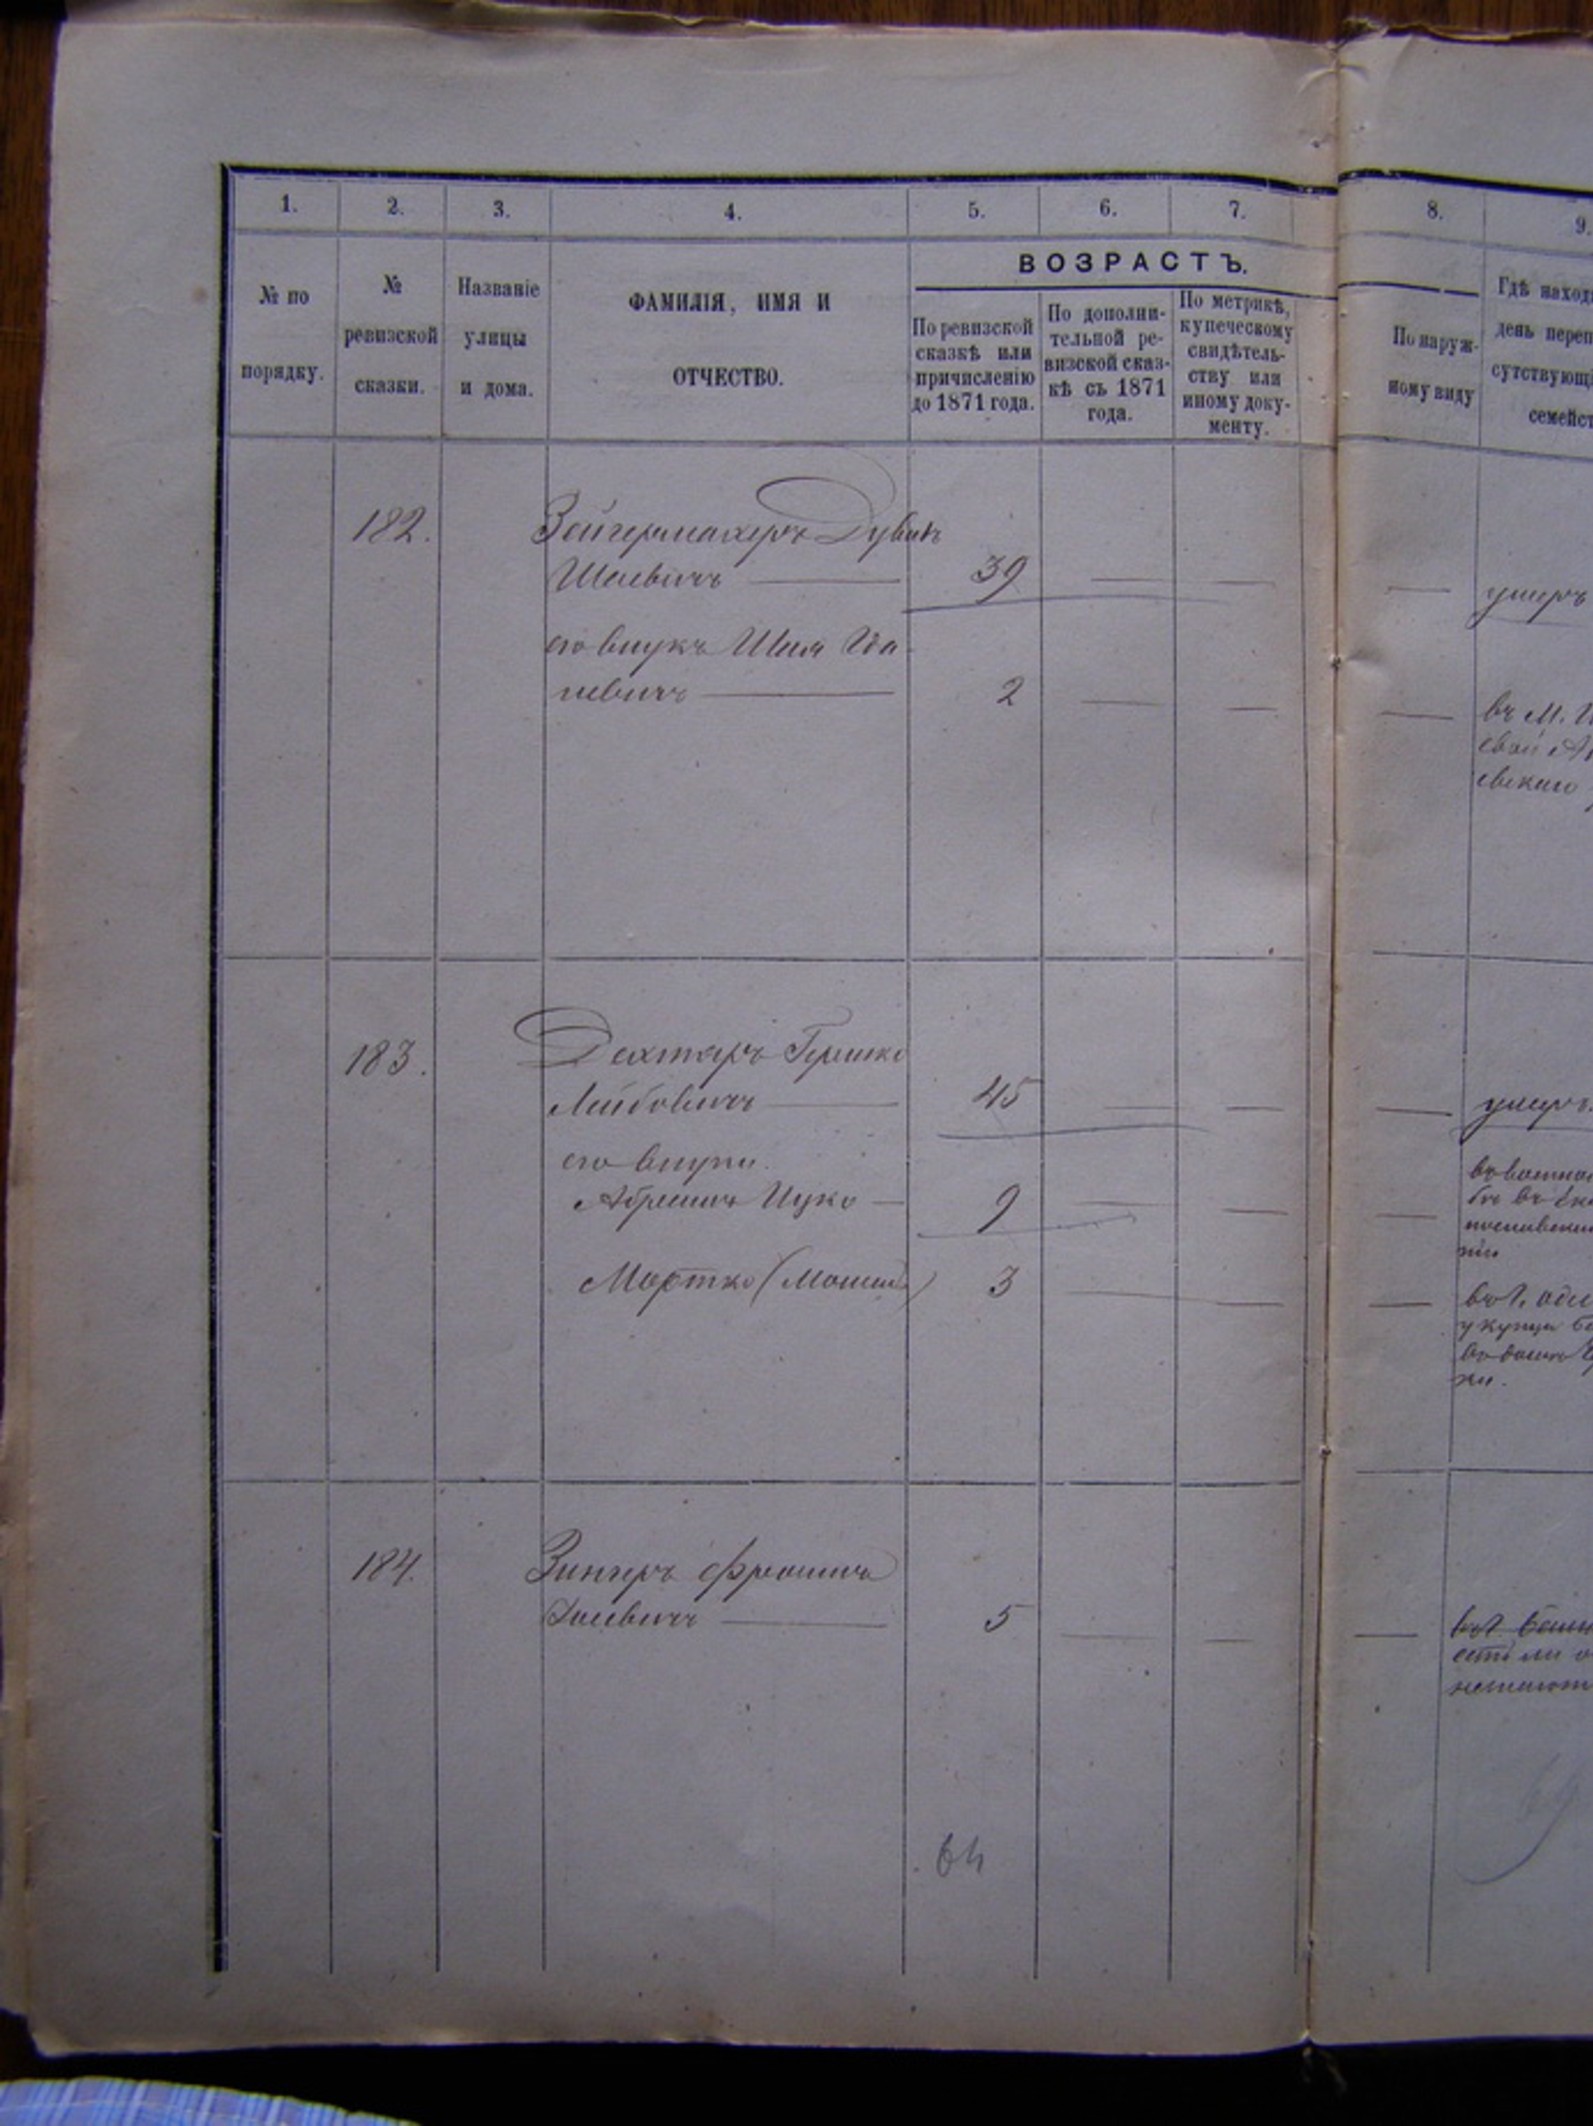 1. 2. 3. 4. 5. 6. 7. 8. 9.
№ по
порядку.
№
ревизской
сказки.
Названіе
улицы
и дома.
ФАМИЛІЯ, ИМЯ И
ОТЧЕСТВО.
ВОЗРАСТЪ.
По ревизской
сказкѣ или
причисленію
до 1871 года.
По дополни-
тельной ре-
визской сказ-
кѣ съ 1871
года.
По метрикѣ,
купеческому
свидѣтель-
ству или
иному доку-
менту.
По наруж-
ному виду
Гдѣ наход
день переп
сутствующі
семейст
182. Зейгермахеръ Дувидъ
Шаевичъ 39 умеръ
его внукъ Шая
2 въ м.
183. Дехтяръ Гершко
Лейбовичъ 45 умеръ
его внуки
Абрамъ Ицко 9
Мортко (Мошко) 3
у купца
184. Зингеръ Фроимъ
5
64
69